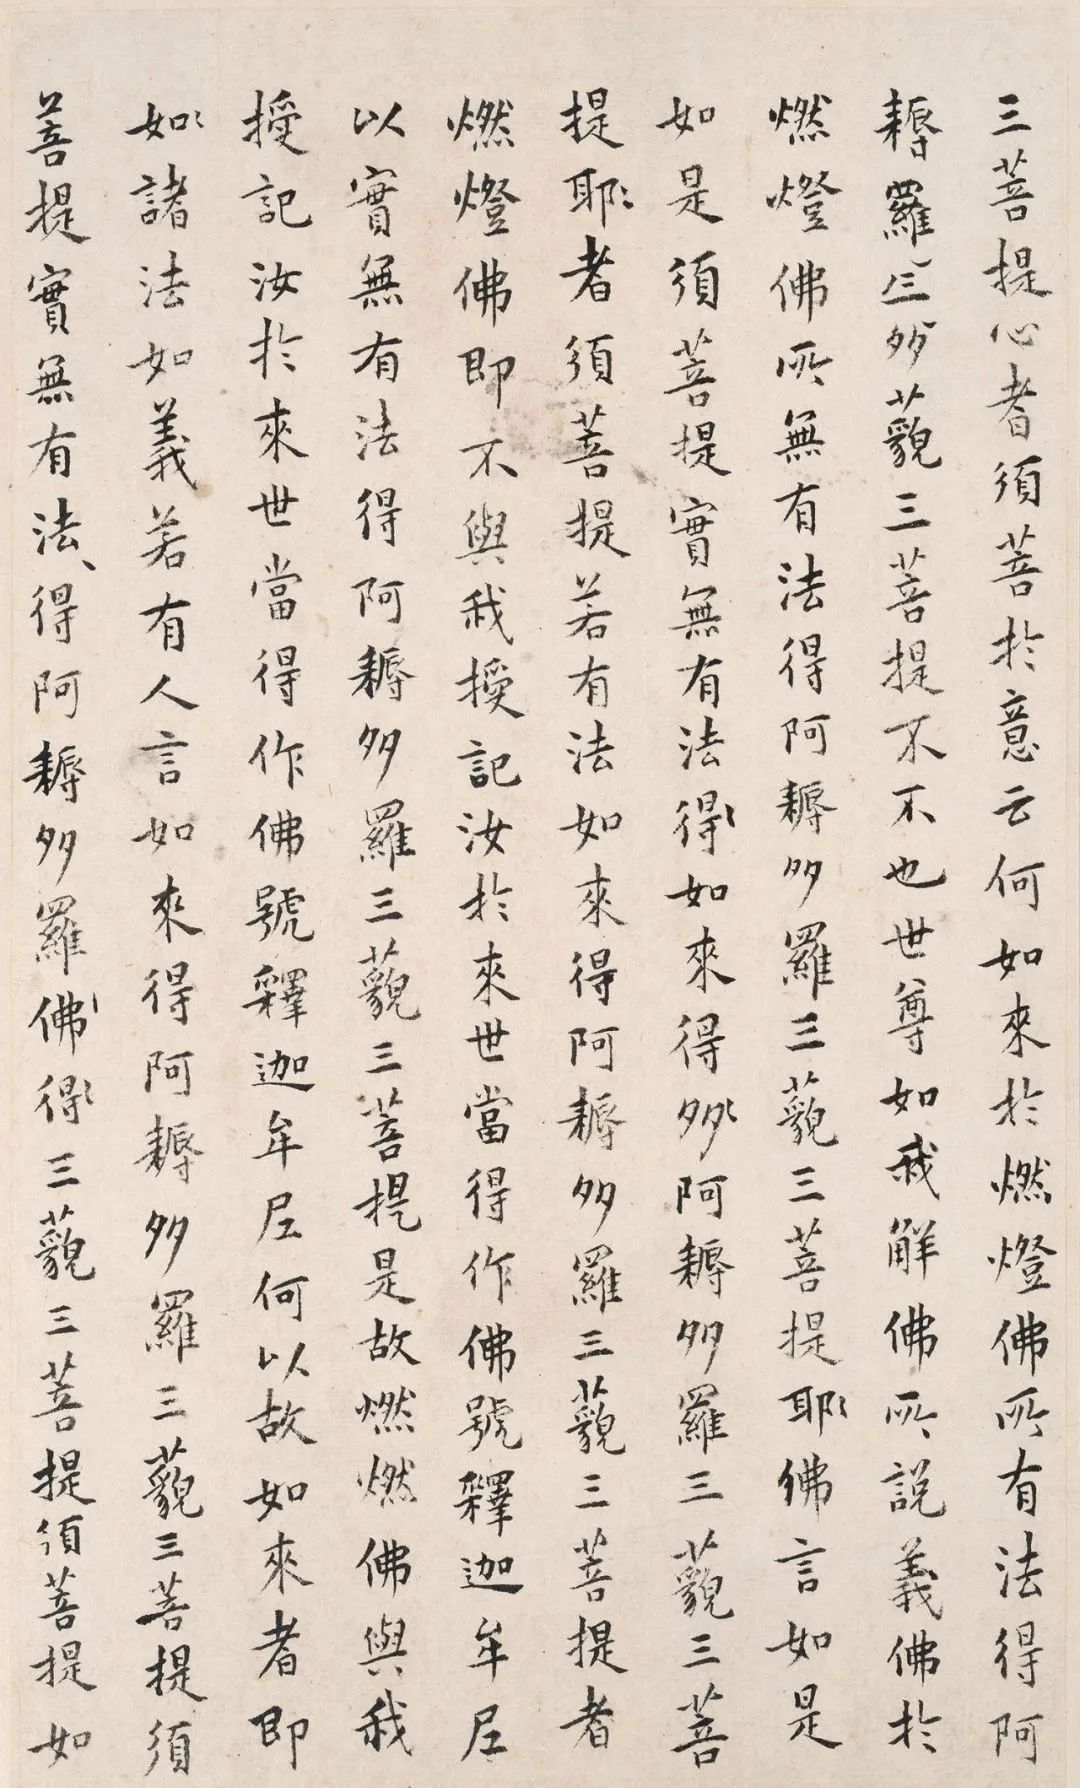 三菩提心者須菩於意云何如來於燃燈佛所有法得阿
耨羅三多藐三菩提不不也世尊如我解佛所說義佛於
燃燈佛所無有法得阿耨多羅三藐三菩提耶佛言如是
如是須菩提實無有法得如來得多阿耨多羅三藐三菩
提耶者須菩提若有法如來得阿耨多羅三藐三菩提者
燃燈佛即不與我授記汝於來世當得作佛號釋迦牟尼
以實無有法得阿耨多羅三藐三菩提是故燃燃佛與我
授記汝於來世當得作佛號釋迦牟尼何以故如來者即
如諸法如義若有人言如來得阿耨多羅三藐三菩提須
菩提實無有法得阿耨多羅佛得三藐三菩提須菩提如